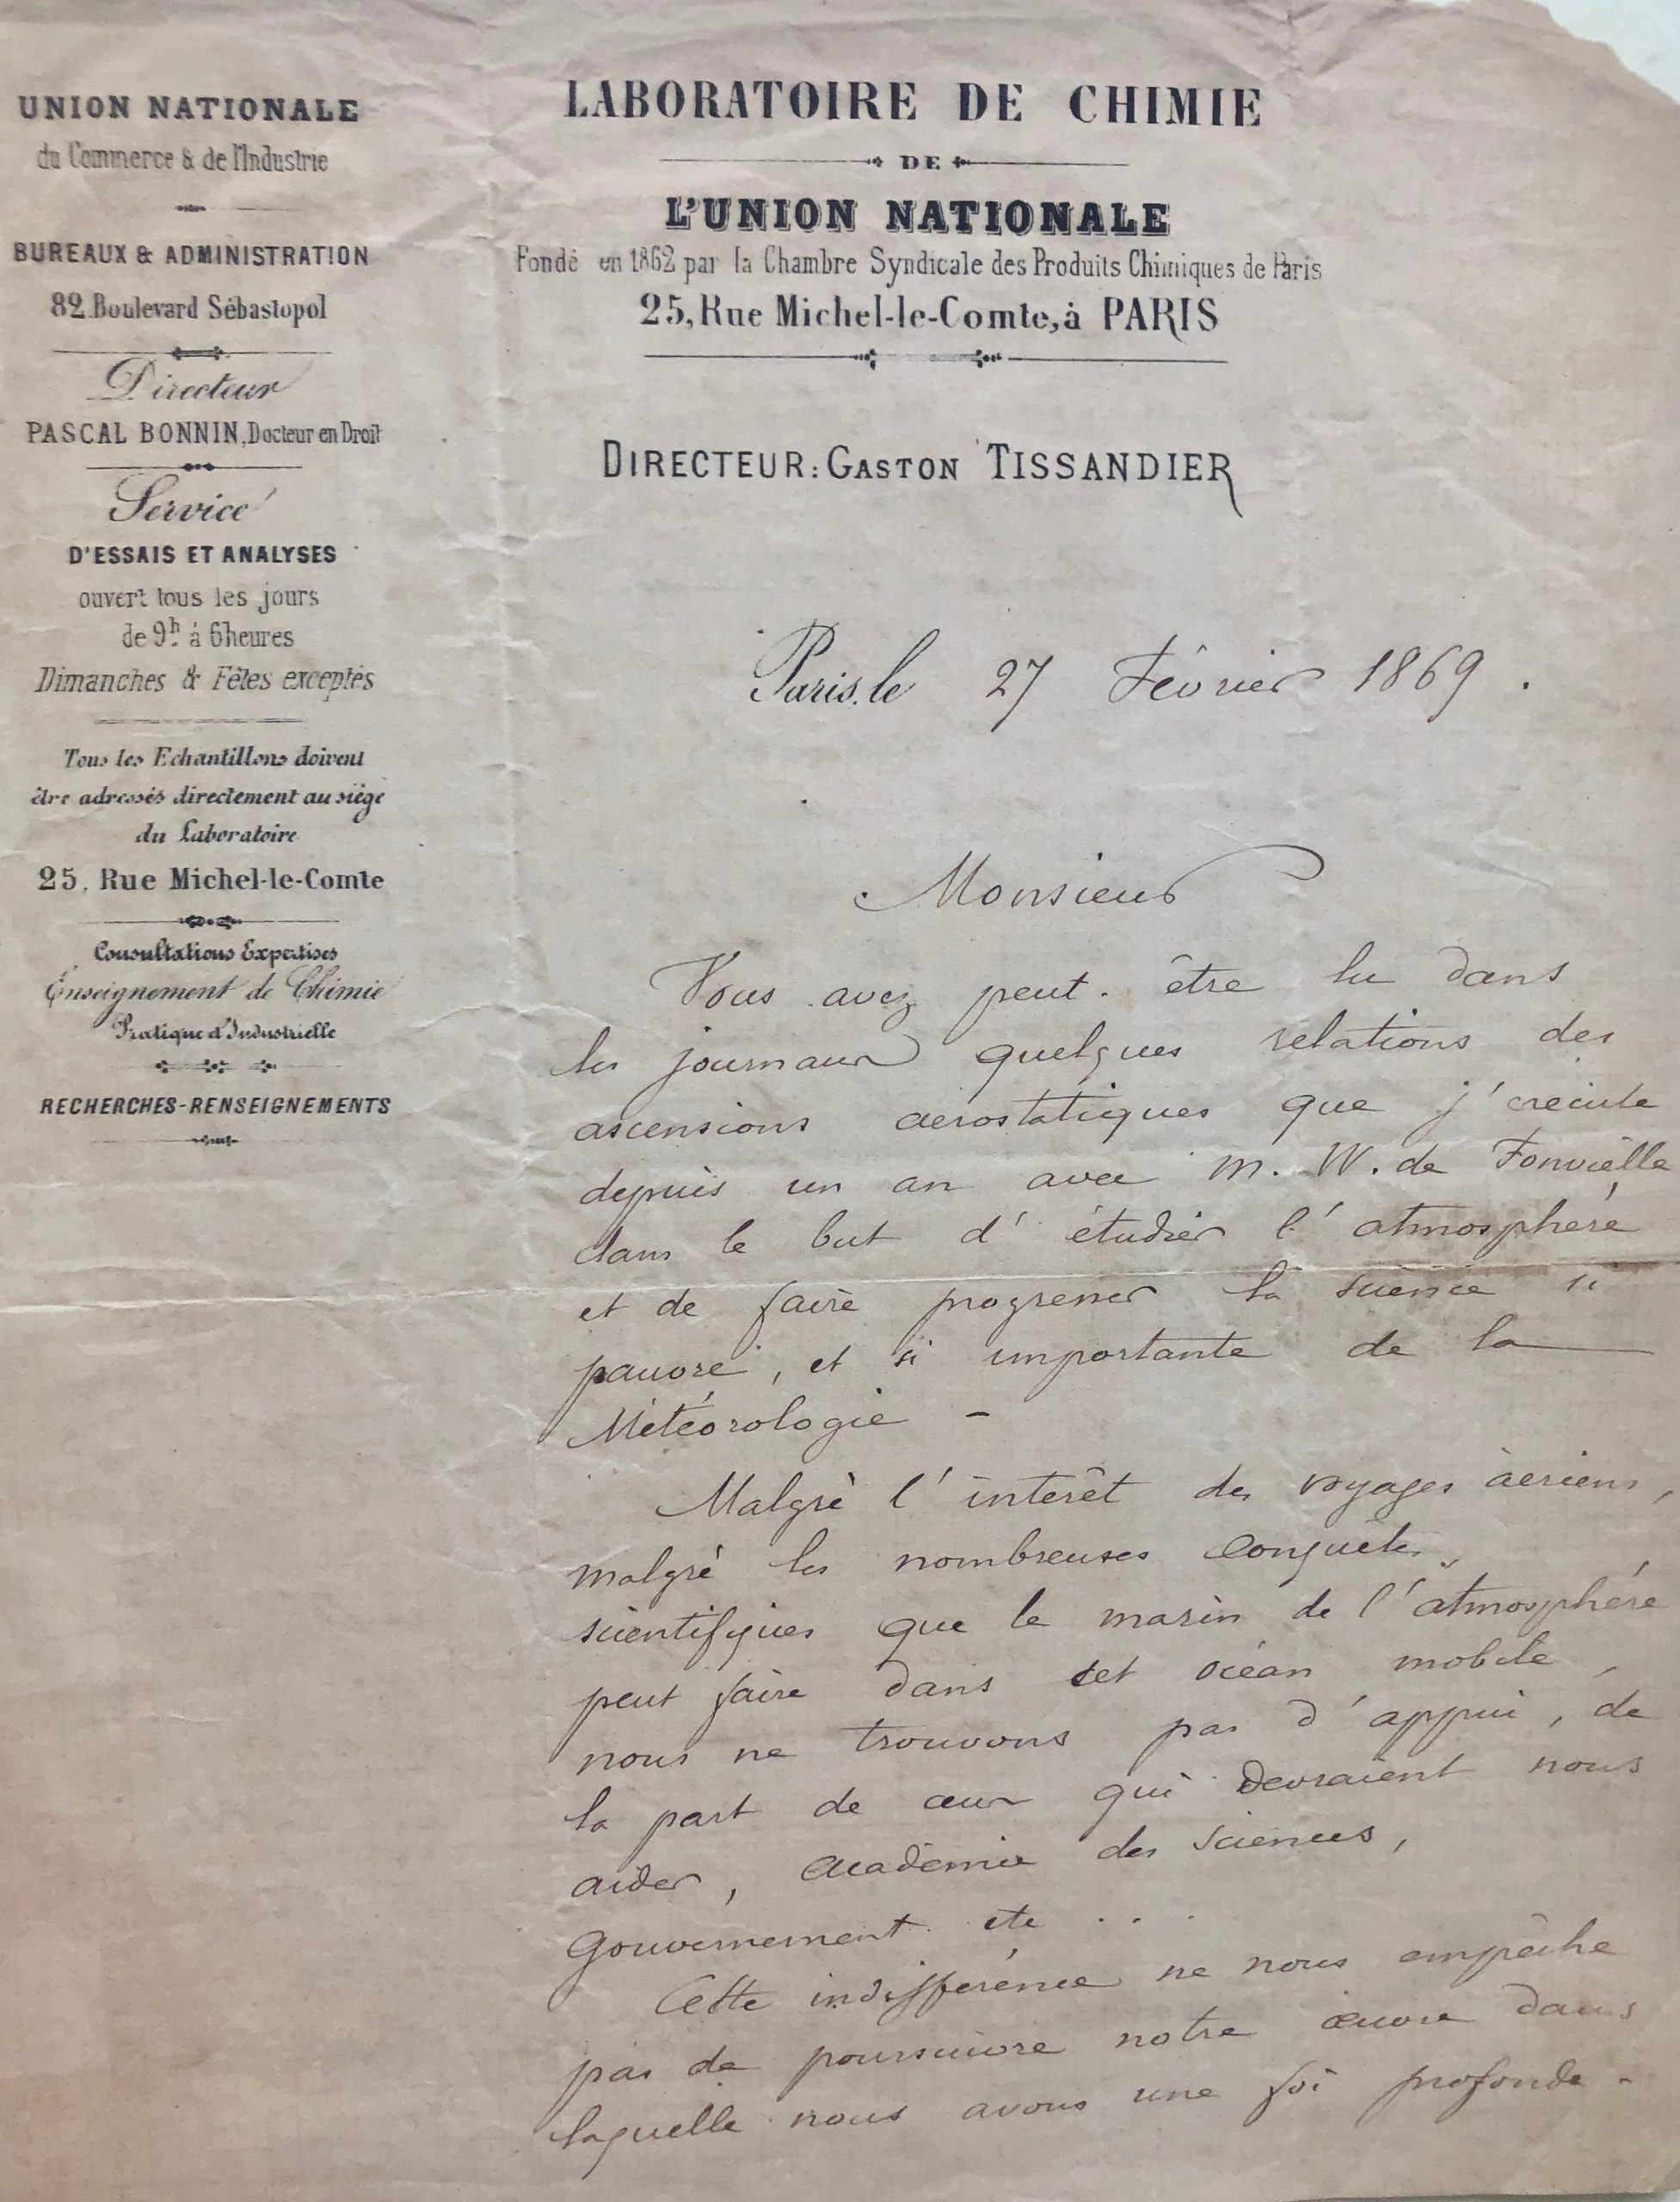 UNION NATIONALE
du Commerce & de l'Industrie
BUREAUX & ADMINISTRATION
82 Boulevard Sébastopol
Directeur
PASCAL BONNIN, Docteur en Droit
Service
D'ESSAIS ET ANALYSES
ouvert tous les jours
de 9h. à 6 heures
Dimanches & Fêtes exceptés
Tous les Echantillons doivent
être adressés directement au siège
du Laboratoire
25, Rue Michel-le-Comte
Consultations Expertises
Enseignement de Chimie
Pratique et Industrielle
RECHERCHES-RENSEIGNEMENTS
LABORATOIRE DE CHIMIE
DE
L'UNION NATIONALE
Fondé en 1862 par la Chambre Syndicale des Produits Chimiques de Paris
25, Rue Michel-le-Comte, à PARIS
DIRECTEUR: GASTON TISSANDIER
Paris, le 27 Février 1869.
Monsieur
Vous avez peut-être lu dans
les journaux quelques relations des
ascensions aerostatiques que j'exécute
depuis un an avec M. W. de Fonvielle
dans le but d'étudier l'atmosphère
et de faire progresser la science si
pauvre, et si importante de la
Météorologie -
Malgré l'intérêt des voyages aèriens,
malgré les nombreuses conquêtes
scientifiques que le marin de l'atmosphère
peut faire dans cet océan mobile,
nous ne trouvons pas d'appui, de
la part de ceux qui devraient nous
aider, Académie des Sciences,
Gouvernement etc ...
Cette indifférence ne nous empêche
pas de poursuivre notre œuvre dans
laquelle nous avons une foi profonde -